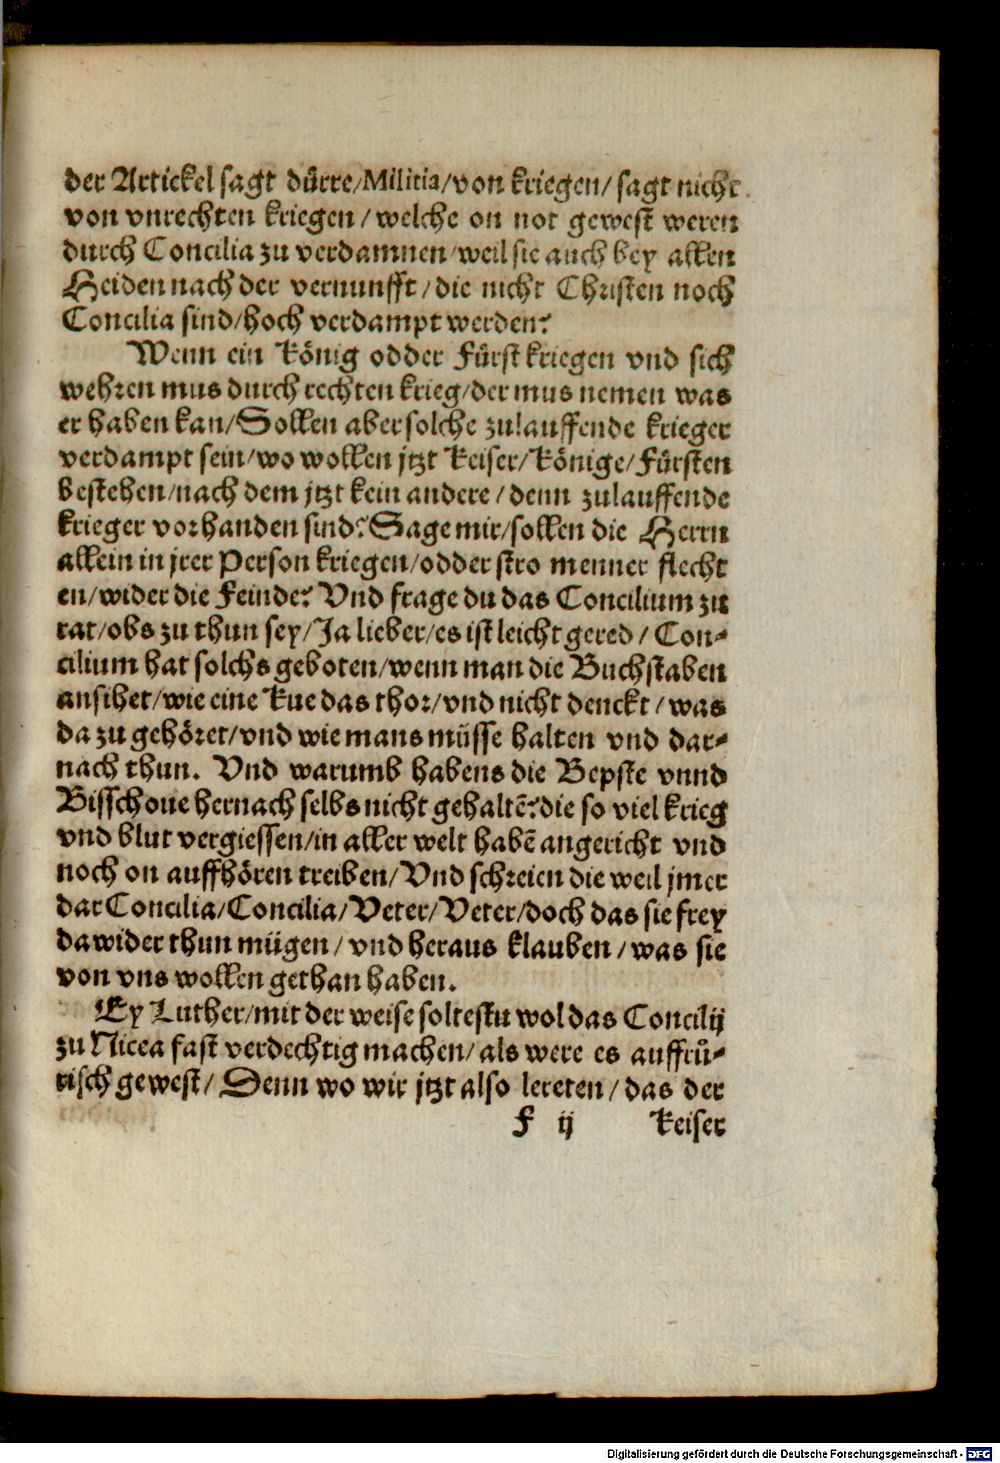 der Artickel sagt dürre/Militia/von kriegen/ sagt nicht
von vnrechten kriegen/welche on not gewest weren
durch Concilia zu verdamnen/weil sie auch bey allen
Heiden nach der vernunfft/die nicht Christen noch
Concilia sind/hoch verdampt werden?
Wenn ein König odder Fürst kriegen vnd sich
wehren mus durch rechten krieg/der mus nemen was
er haben kan/Sollen aber solche zulauffende krieger
verdampt sein/wo wollen jtzt Keiser/Könige/Fürsten
bestehen/nach dem jtzt kein andere/denn zulauffende
krieger vorhanden sind? Sage mir/sollen die Herrn
allein in jrer Person kriegen/odder stro menner flecht
en/wider die Feinde? Vnd frage du das Concilium zu
rat/obs zu thun sey/Ja lieber/es ist leicht gered/ Con-
cilium hat solchs geboten/wenn man die Buchstaben
ansihet/wie eine Kue das thor/vnd nicht denckt/was
da zu gehöret/vnd wie mans müsse halten vnd dar-
nach thun. Vnd warumb habens die Bepste vnnd
Bisschoue hernach selbs nicht gehaltē? die so viel krieg
vnd blut vergiessen/in aller welt habē angericht vnd
noch on auffhören treiben/Vnd schreien die weil jmer
dar Concilia/Concilia/Veter/Veter/doch das sie frey
dawider thun mügen/vnd heraus klauben/was sie
von vns wollen gethan haben.
Ey Luther/mit der weise soltestu wol das Concilij
zu Nicea fast verdechtig machen/als were es auffrü-
risch gewest/Denn wo wir jtzt also lereten/das der
F ij Keiser
Digitalisierung gefördert durch die Deutsche Forschungsgemeinschaft - DFG